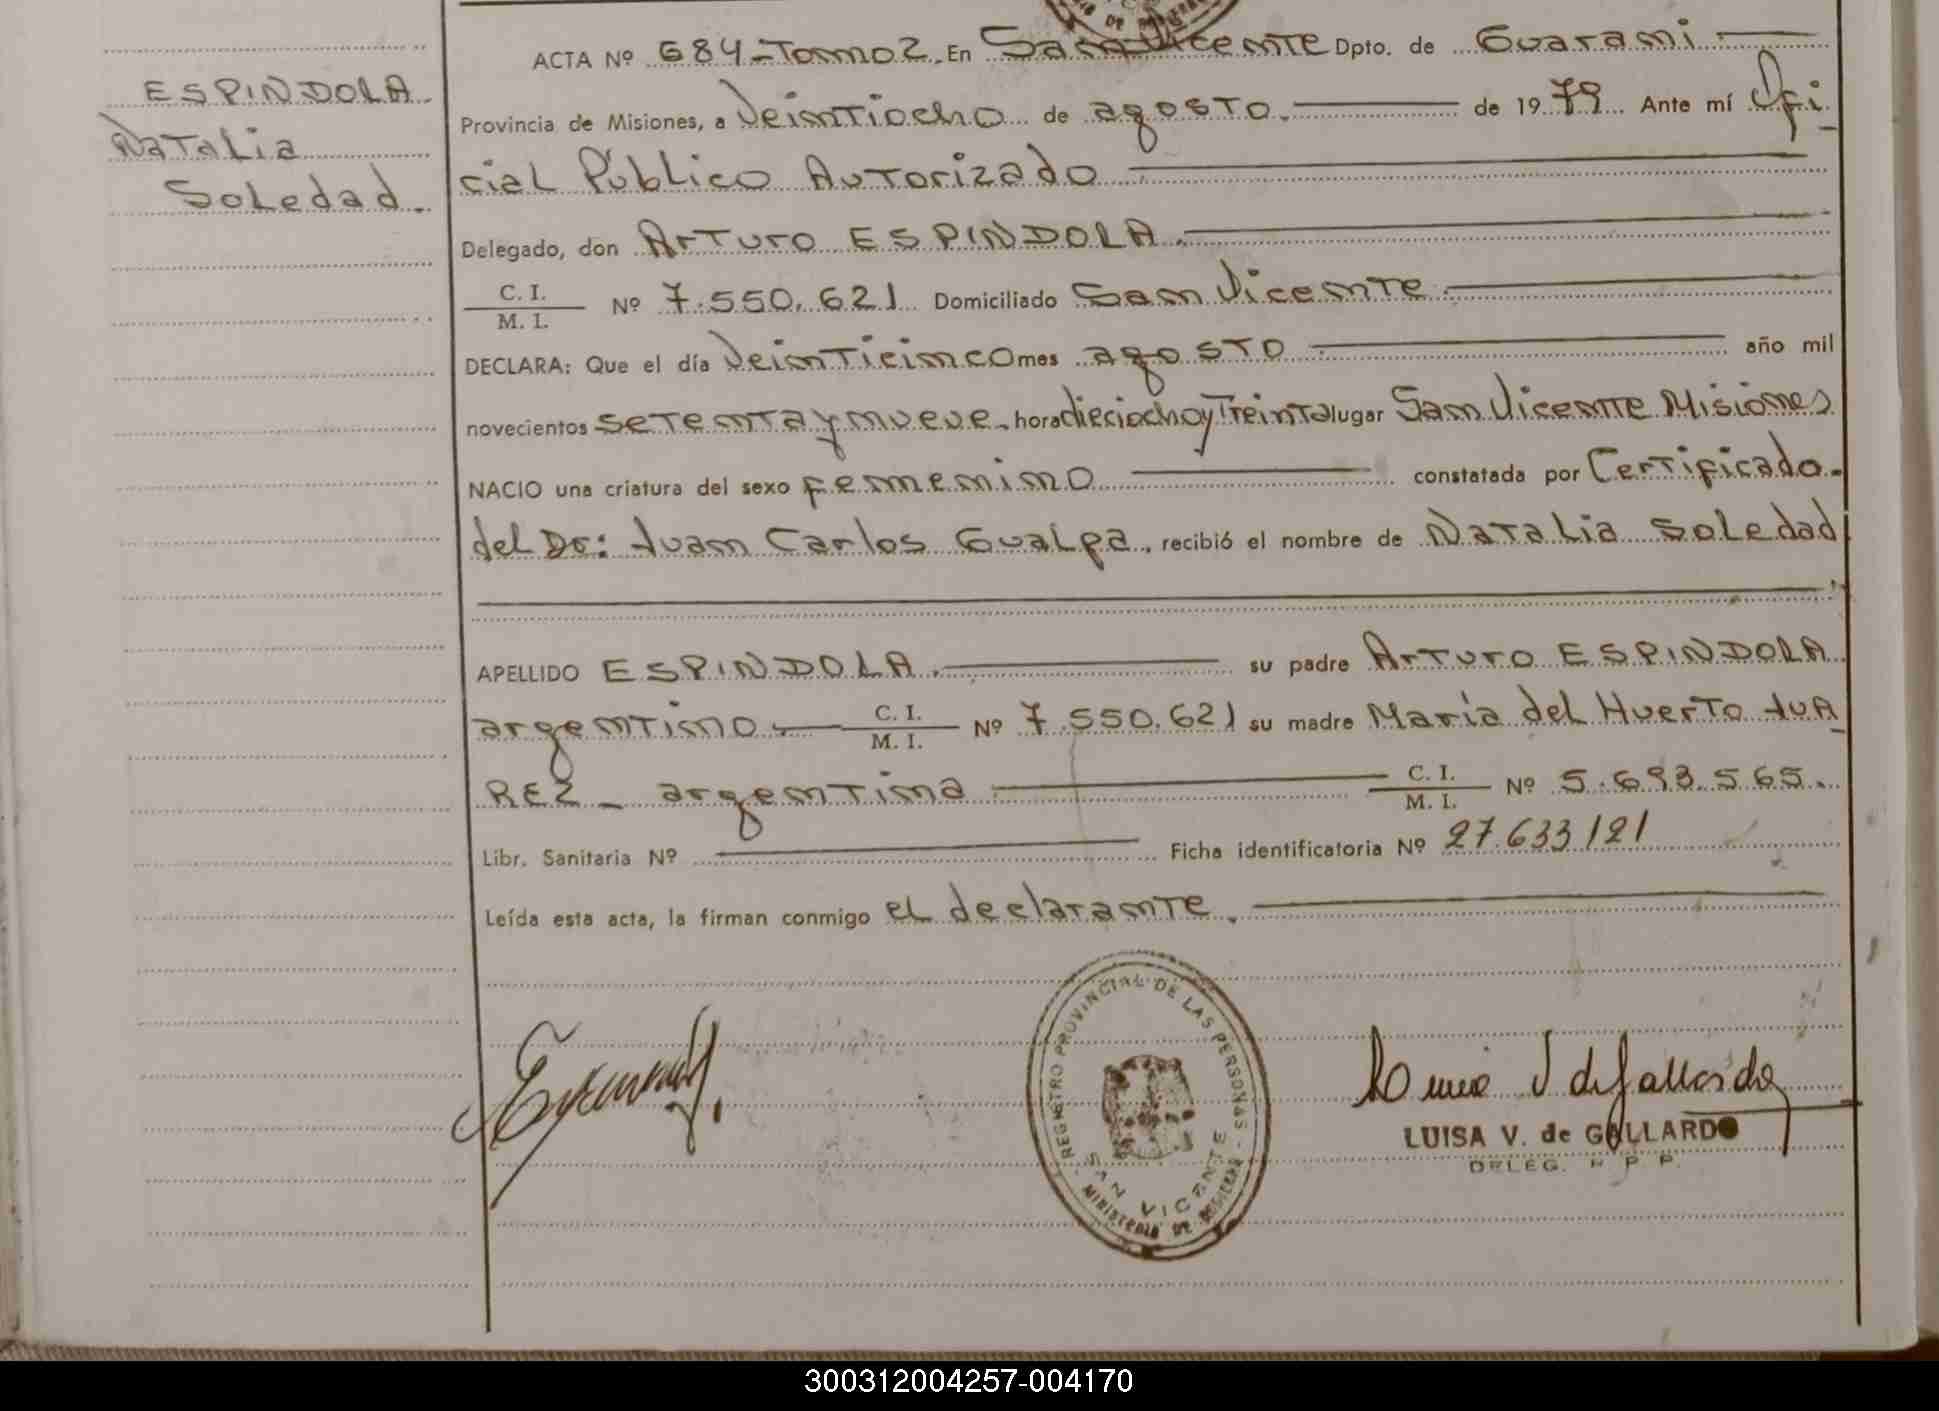 ESPINDOLA
Natalia
Soledad.
ACTA Nº 684-Tomo 2. En San Vicente Dpto. de Guarani
Provincia de Misiones, a Veintiocho de agosto. de 1979 Ante mí Ofi
cial Público Autorizado
Delegado, don Arturo ESPINDOLA.
C. I.
M. I. Nº 7.550.621 Domiciliado San Vicente.
DECLARA: Que el día Veinticinco mes agosto año mil
novecientos setenta y nueve. hora dieciocho y Treinta lugar San Vicente Misiones
NACIO una criatura del sexo femenino constatada por Certificado.
del Dr: Juan Carlos Gualpa, recibió el nombre de Natalia Soledad
APELLIDO ESPINDOLA. su padre Arturo ESPINDOLA
argentino. C. I.
M. I. Nº 7.550.621 su madre María del Huerto JUA
REZ - argentina C. I.
M. I. Nº 5.693.565.
Libr. Sanitaria Nº Ficha identificatoria Nº 27.633121
Leída esta acta, la firman conmigo el declarante.
REGISTRO PROVINCIAL DE LAS PERSONAS - SAN VICENTE
MINISTERIO DE
LUISA V. de GALLARDO
DELEG. R P P.
300312004257-004170